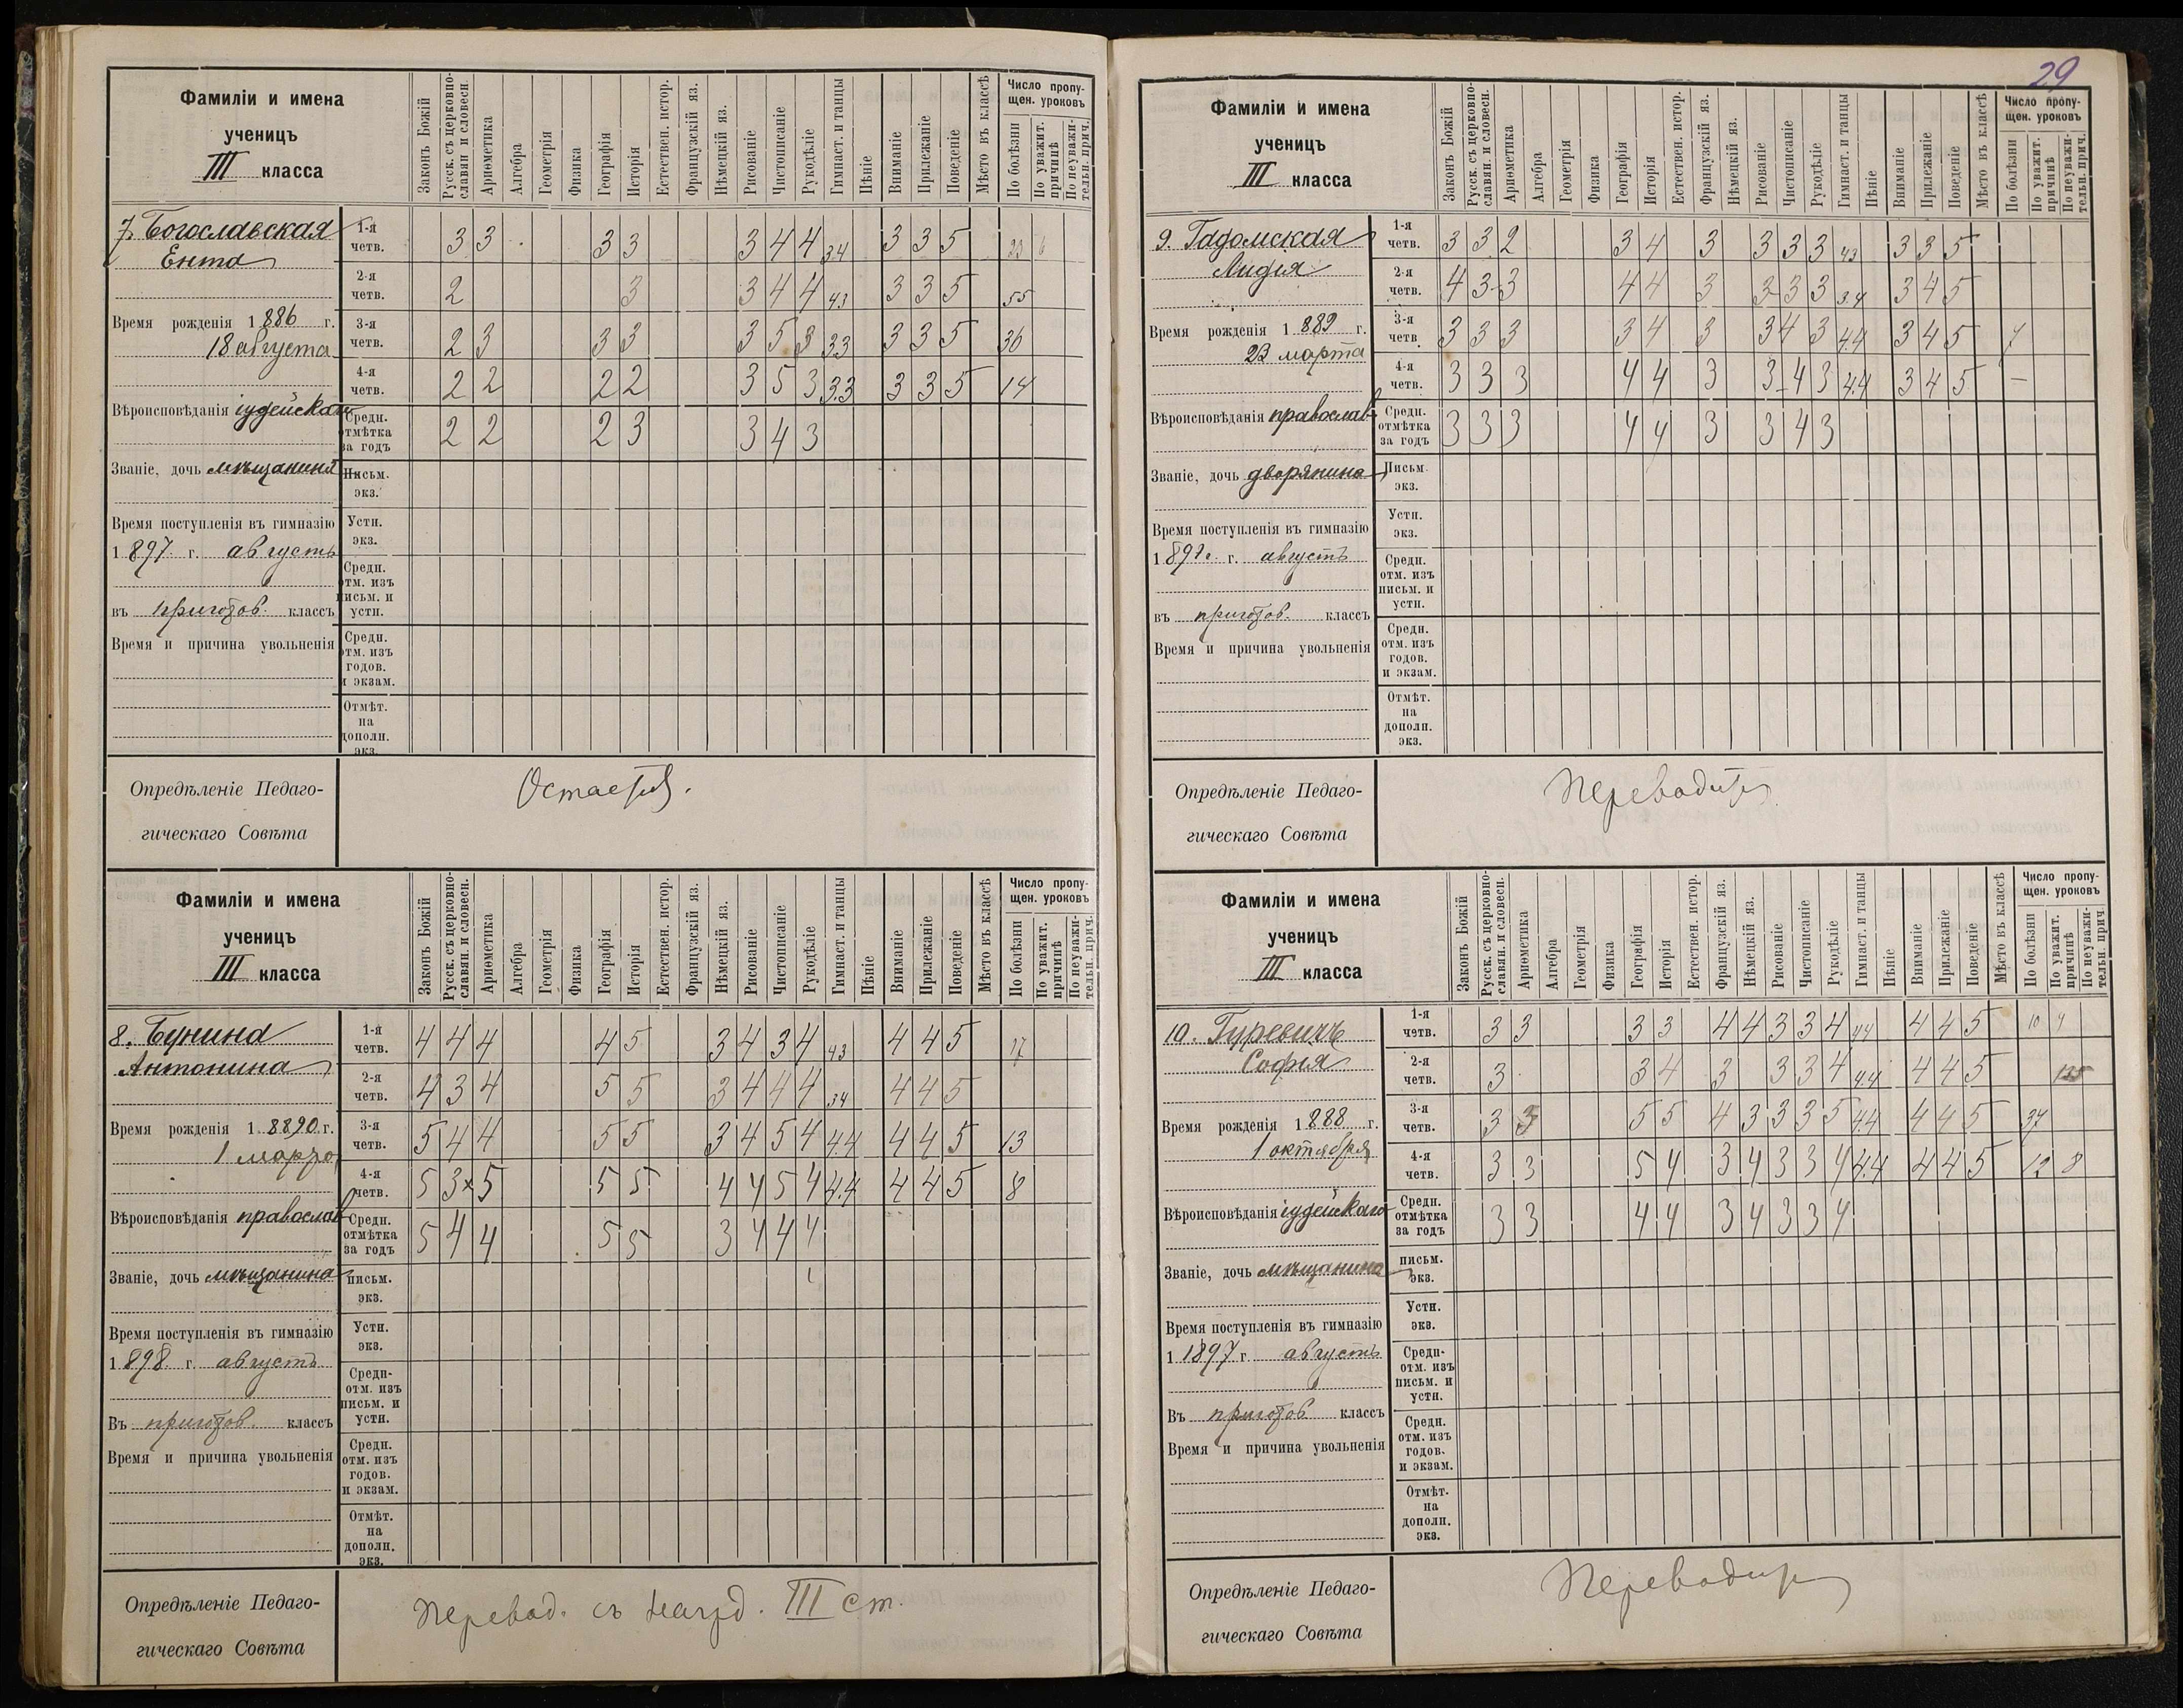 29
Фамиліи и имена
ученицъ
III класса
Законъ Божій
Русск. съ церковно-
славян. и словесн.
Ариѳметика
Алгебра
Геометрія
Физика
Географія
Исторія
Естествен. истор.
Французскій яз.
Нѣмецкій яз.
Рисованіе
Чистописаніе
Рукодѣліе
Гимнаст. и танцы
Пѣніе
Вниманіе
Прилежаніе
Поведеніе
Мѣсто въ классѣ
Число пропу-
щен. уроковъ
По болѣзни
По уважит.
причинѣ
По неуважи-
тельн. прич.
7. Богославская
Ента
Время рожденія 1886 г.
18 августа
Вѣроисповѣданія іудейскаго
Званіе, дочь мѣщанина
Время поступленія въ гимназію
1897 г. августъ
въ приготов. классъ
Время и причина увольненія
1-я четв. 3 3 3 3 3 4 4 3.4 3 3 5 23 6
2-я четв. 2 3 3 4 4 4.3 3 3 5 55
3-я четв. 2 3 3 3 3 5 3 3.3 3 3 5 36
4-я четв. 2 2 2 2 3 5 3 3.3 3 3 5 14
Средн. отмѣтка за годъ 2 2 2 3 3 4 3
Письм. экз.
Устн. экз.
Средн. отм. изъ письм. и устн.
Средн. отм. изъ годов. и экзам.
Отмѣт. на дополн. экз.
Опредѣленіе Педаго-
гическаго Совѣта
Остается.
Фамиліи и имена
ученицъ
III класса
Законъ Божій
Русск. съ церковно-
славян. и словесн.
Ариѳметика
Алгебра
Геометрія
Физика
Географія
Исторія
Естествен. истор.
Французскій яз.
Нѣмецкій яз.
Рисованіе
Чистописаніе
Рукодѣліе
Гимнаст. и танцы
Пѣніе
Вниманіе
Прилежаніе
Поведеніе
Мѣсто въ классѣ
Число пропу-
щен. уроковъ
По болѣзни
По уважит.
причинѣ
По неуважи-
тельн. прич.
8. Бунина
Антонина
Время рожденія 1 8890 г.
1 марта
Вѣроисповѣданія православ
Званіе, дочь мѣщанина
Время поступленія въ гимназію
1898 г. августъ
Въ приготов. классъ
Время и причина увольненія
1-я четв. 4 4 4 4 5 3 4 3 4 4.3 4 4 5 17
2-я четв. 4 3 4 5 5 3 4 4 4 3.4 4 4 5
3-я четв. 5 4 4 5 5 3 4 5 4 4.4 4 4 5 13
4-я четв. 5 3 5 5 5 4 4 5 4 4.4 4 4 5 8
Средн. отмѣтка за годъ 5 4 4 5 5 3 4 4 4
письм. экз.
Устн. экз.
Средн- отм. изъ письм. и устн.
Средн. отм. изъ годов. и экзам.
Отмѣт. на дополн. экз.
Опредѣленіе Педаго-
гическаго Совѣта
Перевод. съ нагрд. III ст.
Фамиліи и имена
ученицъ
III класса
Законъ Божій
Русск. съ церковно-
славян. и словесн.
Ариѳметика
Алгебра
Геометрія
Физика
Географія
Исторія
Естествен. истор.
Французскій яз.
Нѣмецкій яз.
Рисованіе
Чистописаніе
Рукодѣліе
Гимнаст. и танцы
Пѣніе
Вниманіе
Прилежаніе
Поведеніе
Мѣсто въ классѣ
Число пропу-
щен. уроковъ
По болѣзни
По уважит.
причинѣ
По неуважи-
тельн. прич.
9. Гадомская
Лидія
Время рожденія 1889 г.
23 марта
Вѣроисповѣданія православ
Званіе, дочь дворянина
Время поступленія въ гимназію
г. августъ
въ приготов. классъ
Время и причина увольненія
1-я четв. 3 3 2 3 4 3 3 3 3 4.3 3 3 5
2-я четв. 4 3 3 4 4 3 3 3 3 3.4 3 4 5
3-я четв. 3 3 3 3 4 3 3 4 3 4.4 3 4 5 7
4-я четв. 3 3 3 4 4 3 3 4 3 4.4 3 4 5 —
Средн. отмѣтка за годъ 3 3 3 4 4 3 3 4 3
Письм. экз.
Устн. экз.
Средн. отм. изъ письм. и устн.
Средн. отм. изъ годов. и экзам.
Отмѣт. на дополн. экз.
Опредѣленіе Педаго-
гическаго Совѣта
Переводится
Фамиліи и имена
ученицъ
III класса
Законъ Божій
Русск. съ церковно-
славян. и словесн.
Ариѳметика
Алгебра
Геометрія
Физика
Географія
Исторія
Естествен. истор.
Французскій яз.
Нѣмецкій яз.
Рисованіе
Чистописаніе
Рукодѣліе
Гимнаст. и танцы
Пѣніе
Вниманіе
Прилежаніе
Поведеніе
Мѣсто въ классѣ
Число пропу-
щен. уроковъ
По болѣзни
По уважит.
причинѣ
По неуважи-
тельн. прич
10. Гуревичъ
Софія
Время рожденія 1888 г.
1 октября
Вѣроисповѣданія іудейскаго
Званіе, дочь мѣщанина
Время поступленія въ гимназію
1 1897 г. августъ
Въ приготов классъ
Время и причина увольненія
1-я четв. 3 3 3 3 4 4 3 3 4 4.4 4 4 5 10 4
2-я четв. 3 3 4 3 3 3 4 4.4 4 4 5
3-я четв. 3 3 5 5 4 3 3 3 5 4.4 4 4 5 37
4-я четв. 3 3 5 4 3 4 3 3 4 4.4 4 4 5 12 8
Средн. отмѣтка за годъ 3 3 4 4 3 4 3 3 4
письм. экз.
Устн. экз.
Средн- отм. изъ письм. и устн.
Средн. отм. изъ годов. и экзам.
Отмѣт- на дополн. экз.
Опредѣленіе Педаго-
гическаго Совѣта
Переводится